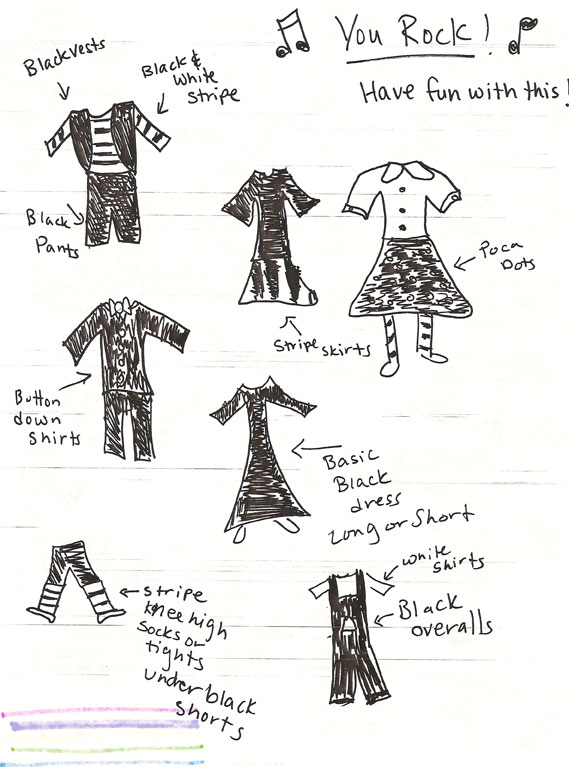 You Rock!
Have fun with this!
Black vests
Black &
White
Stripe
Black
Pants
Poca
Dots
Stripe skirts
Button
down
Shirts
Basic
Black
dress
Long or Short
white
shirts
Black
overalls
stripe
knee high
socks or
tights
under black
shorts